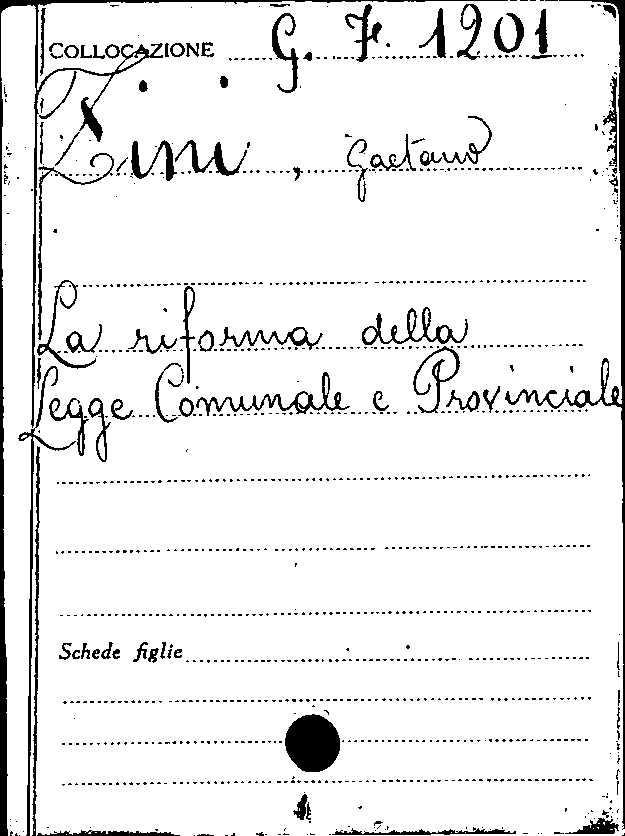 COLLOCAZIONE G. F. 1201
Zini, Gaetano
La riforma della
Legge Comunale e Provinciale
Schede figlie